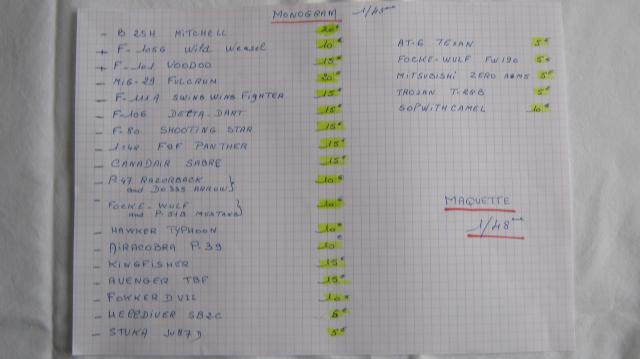 MONOGRAM 1/48ème
- B 25H MITCHELL 20€
+ F-105G Wild Weasel 10€
+ F-101 VOODOO 15€
- MiG-29 FULCRUM 20€
- F-111A SWING WING FIGHTER 15€
- F-106 DELTA-DART 15€
- F-80 SHOOTING STAR 15€
- 1:48 F9F PANTHER 15€
- CANADAIR SABRE 15€
- P.47 RAZORBACK
and DO 335 ARROW} 10€
- FOCKE-WULF
and P.51B MUSTANG} 10€
- HAWKER TYPHOON 10€
- AIRACOBRA P.39 10€
- KINGFISHER 15€
- AVENGER TBF 15€
- FOKKER D VII 10€
- HELLDIVER SB2C 5€
- STUKA JU87D 5€
AT-6 TEXAN 5€
FOCKE-WULF FW190 5€
MITSUBISHI ZERO A6M5 5€
TROJAN T-28B 5€
SOPWITH CAMEL 10€
MAQUETTE
1/48ème